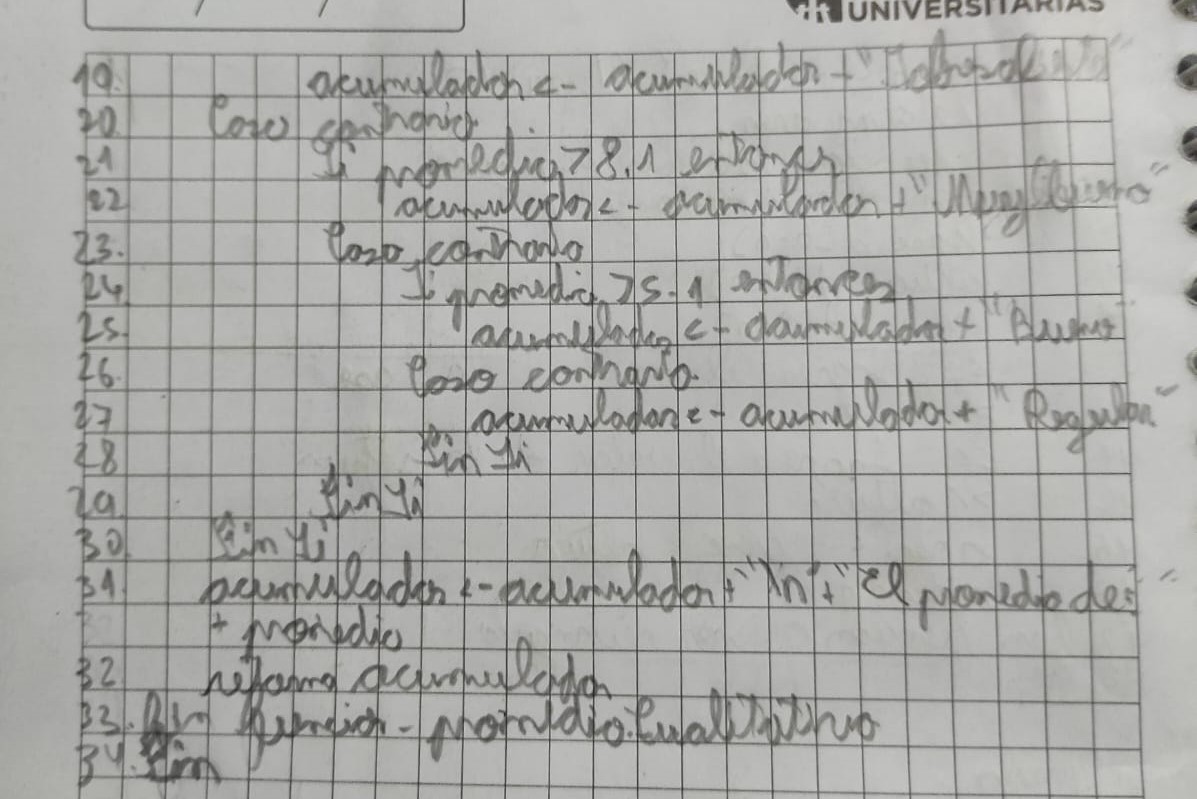 UNIVERSITARIAS
19. acumulador <- acumulador + "
20. Caso contrario
21 Si promedio > 8.1 entonces
22 acumulador <- acumulador + "Muy Bueno"
23. Caso contrario
24 Si promedio > 5.1 entonces
25. acumulador <- acumulador + "Bueno"
26. Caso contrario
27 acumulador <- acumulador + "Regular"
28 Fin Si
29. Fin Si
30 Fin Si
31 acumulador <- acumulador + "\n" + "El promedio de: "
+ promedio
32 retorna acumulador
33. Fin Funcion - promedioCualitativo
34. Fin